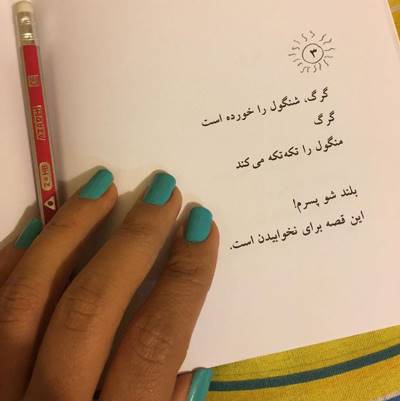 ۳
گرگ، شنگول را خورده است
گرگ
منگول را تکه‌تکه می‌کند
بلند شو پسرم!
این قصه برای نخوابیدن است.
2=HB